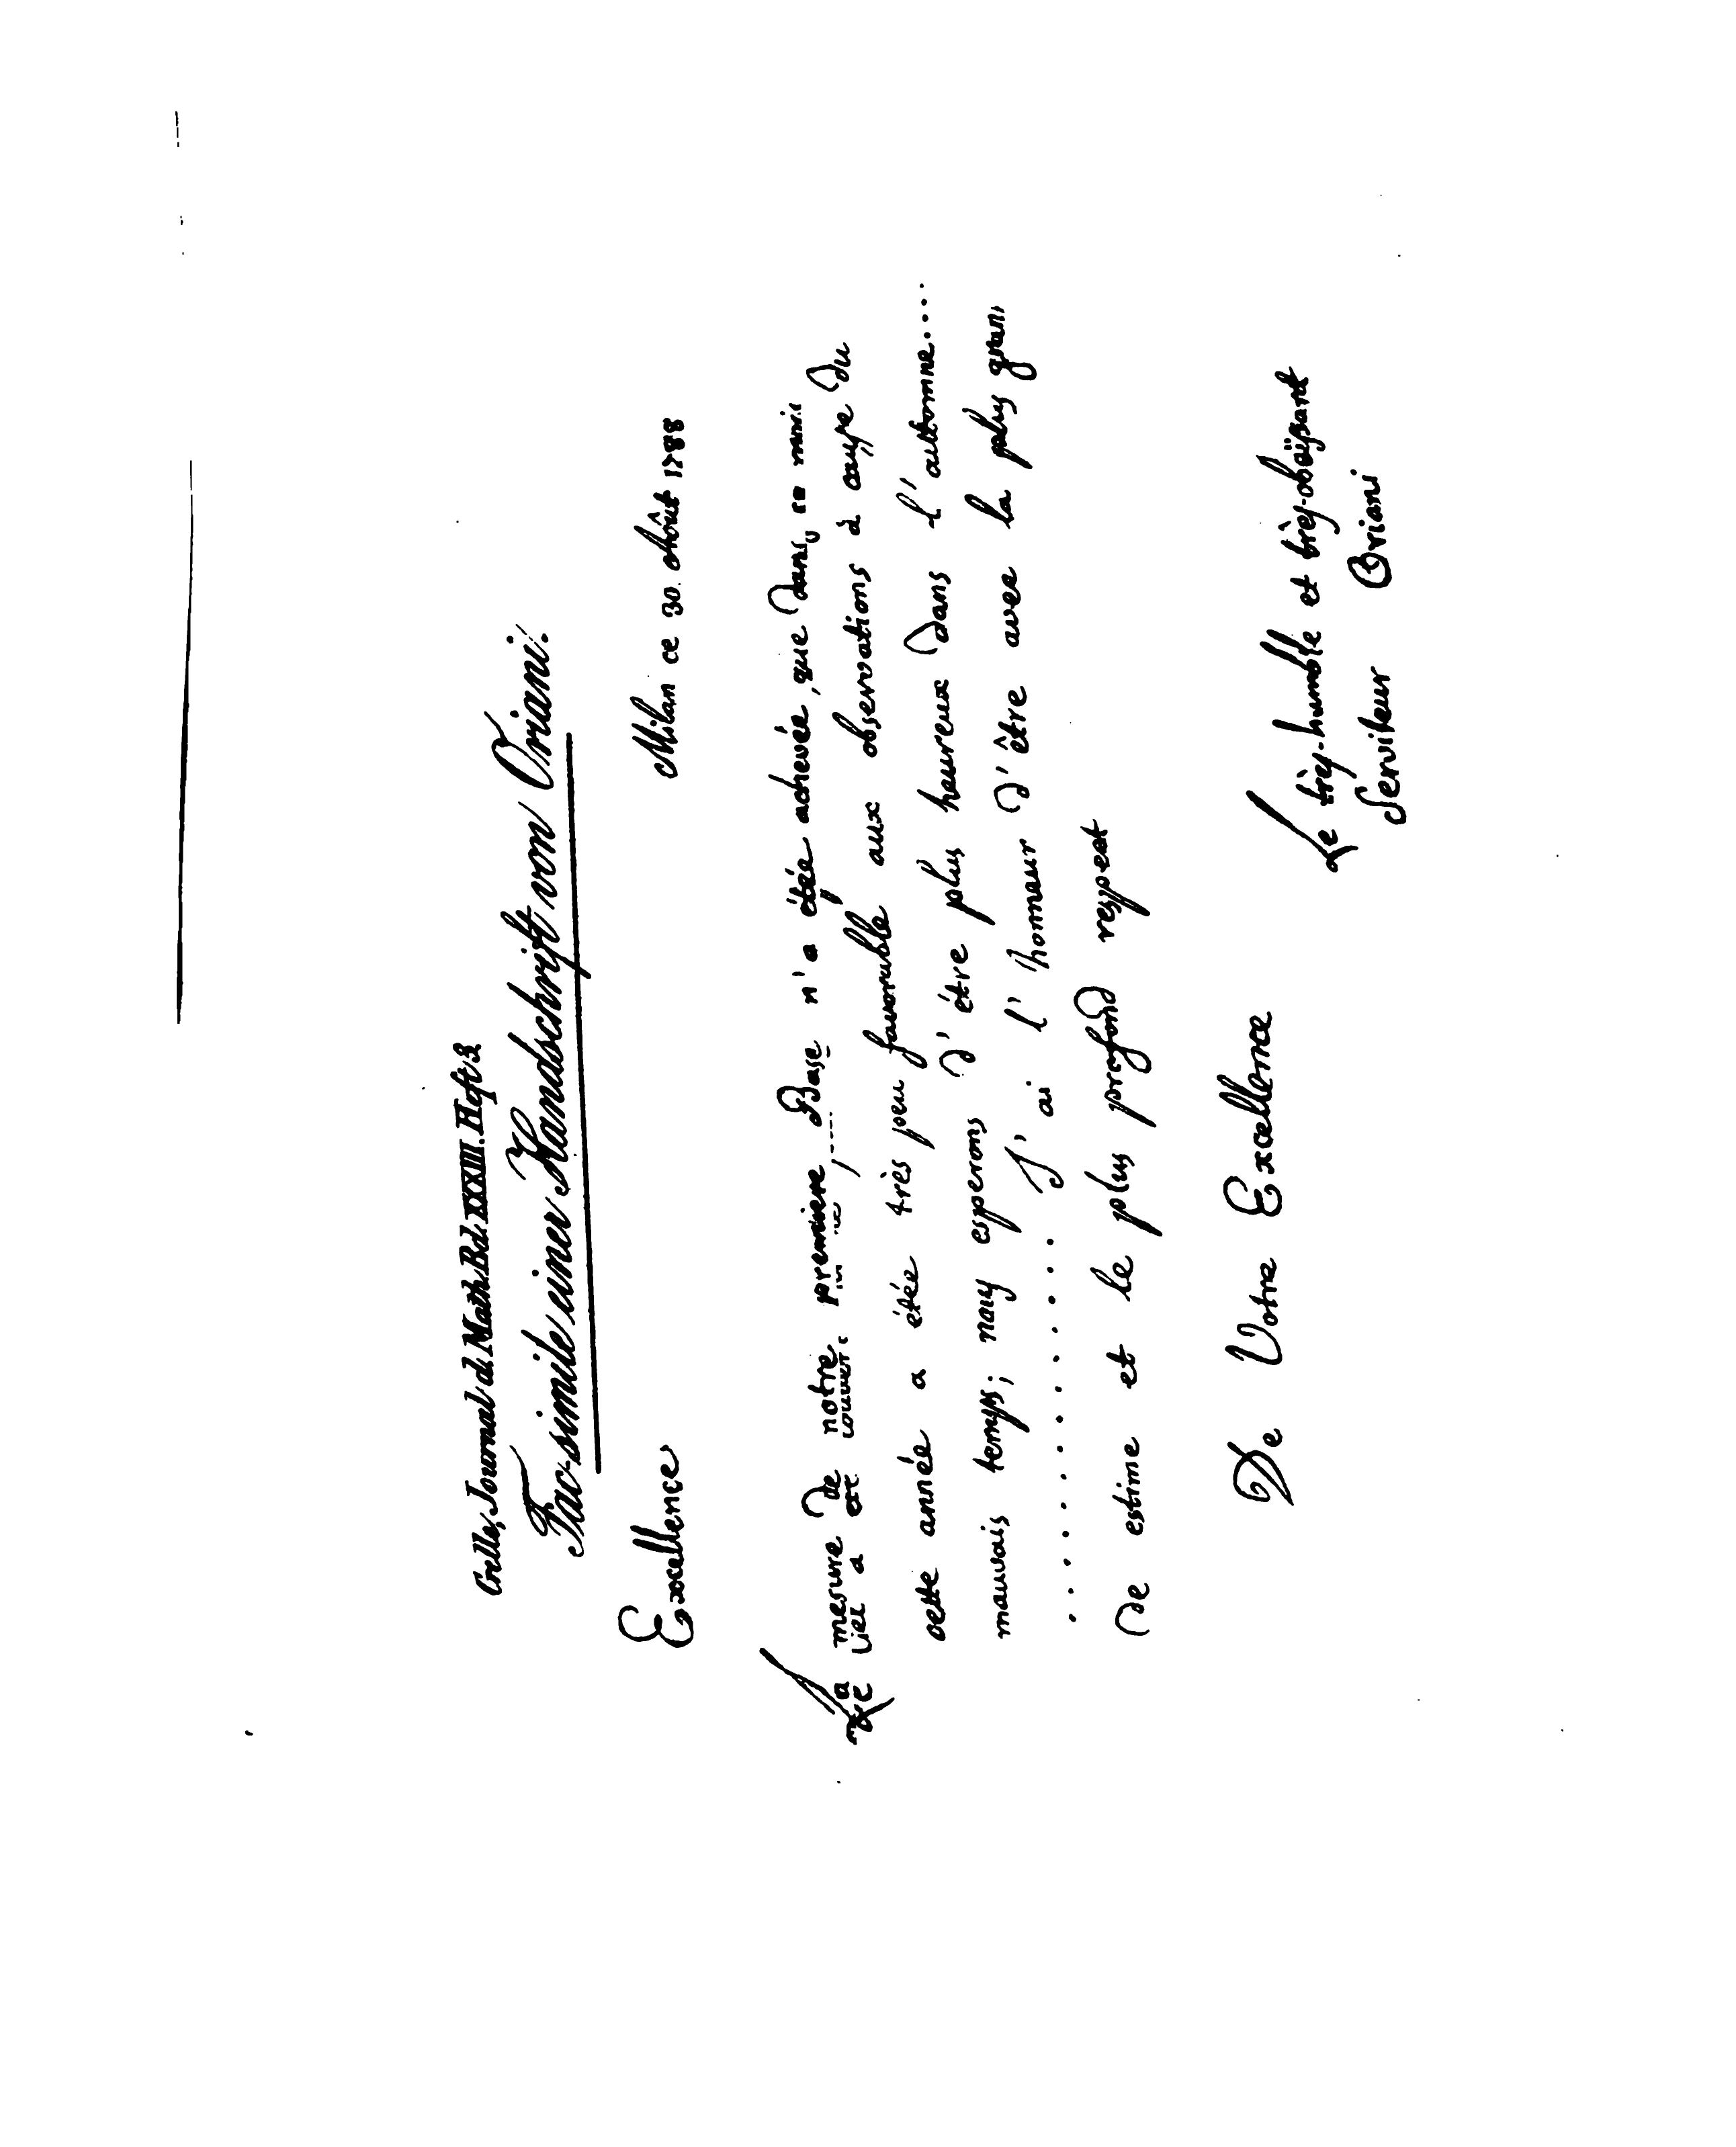 Crelle, Journal d. Math. Bd. XXXIII. Heft
Fac-simile einer Handschrift von Oriani.
Excellence Milan ce 30. Août 1788
La mesure de notre première Base n'a étée achevée, que dans ce
Le ciel a
cette année a étée très peu favorable aux observations à cause du
mauvais temps; nous esperons d'être plus heureux dans l'auttomne....
.............. J'ai l'honneur d'être avec la plus gran
de estime et le plus profond respect
De Votre Excellence
Le très-humble et très-obeïssant
Serviteur Oriani